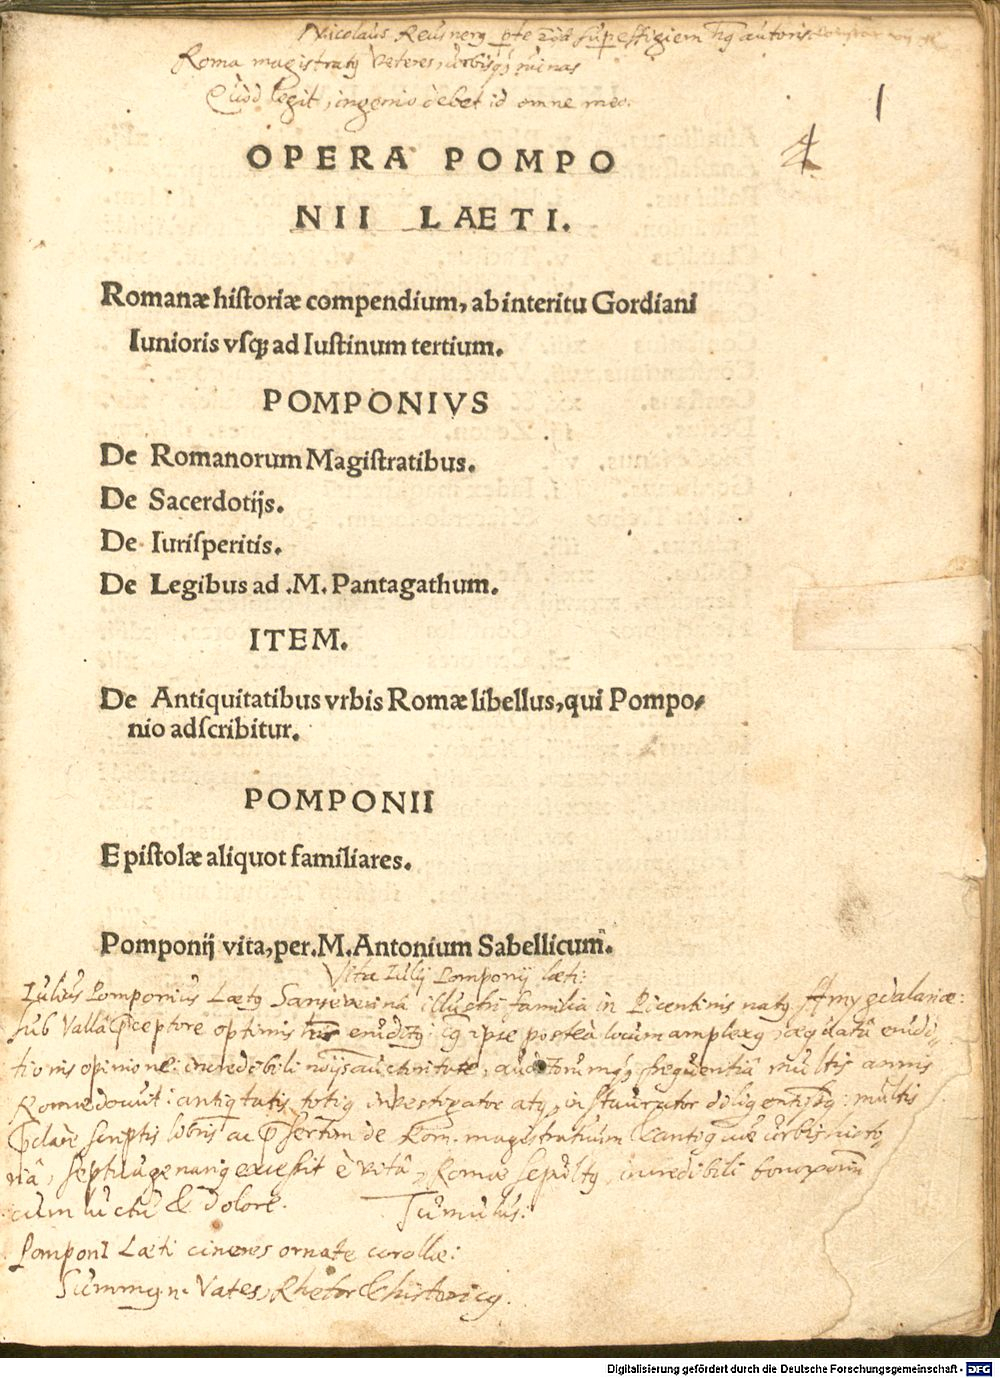 Nicolaus Reusnerꝯ supra effigiem hꝯ autoris
Roma magistratꝯ veteres, urbisqꝫ ruinas
Quod legit, ingenio debet id omne meo.
1
4
OPERA POMPO
NII LAETI.
Romanæ hiſtoriæ compendium, ab interitu Gordiani
Iunioris vſqꝫ ad Iuſtinum tertium.
POMPONIVS
De Romanorum Magiſtratibus.
De Sacerdotijs.
De Iuriſperitis.
De Legibus ad .M. Pantagathum.
ITEM.
De Antiquitatibus vrbis Romæ libellus, qui Pompo-
nio adſcribitur.
POMPONII
Epiſtolæ aliquot familiares.
Pomponij vita, per .M. Antonium Sabellicum.
Vita Iulij Pomponij læti:
Iulius Pomponius Lætꝯ Sanseverina illustri familia in Picentinis natꝯ Amygdalariæ:
sub Vallâ p̃ceptore optimis eruditꝯ: ipse postea locum amplexꝯ, æquatâ erudi„
tionis opinione: incredibili auctoritate, auditorumqꝫ frequentiâ multis annis
Romæ docuit: antiqtatis totiꝯ investigator atqꝫ instaurator diligentissꝯ: multis
p̃clare scriptis libris ac p̃sertim de Rom. magistratuum & antiquæ urbis histo„
riâ, septuagenariꝯ excessit è vitâ, Romæ sepultꝯ, incredibili bonorum
cum luctu & dolore.
Tumulus:
Pomponî Læti cineres ornate corollæ:
Summꝯ n. Vates, Rhetor & historicꝯ.
Digitalisierung gefördert durch die Deutsche Forschungsgemeinschaft - DFG